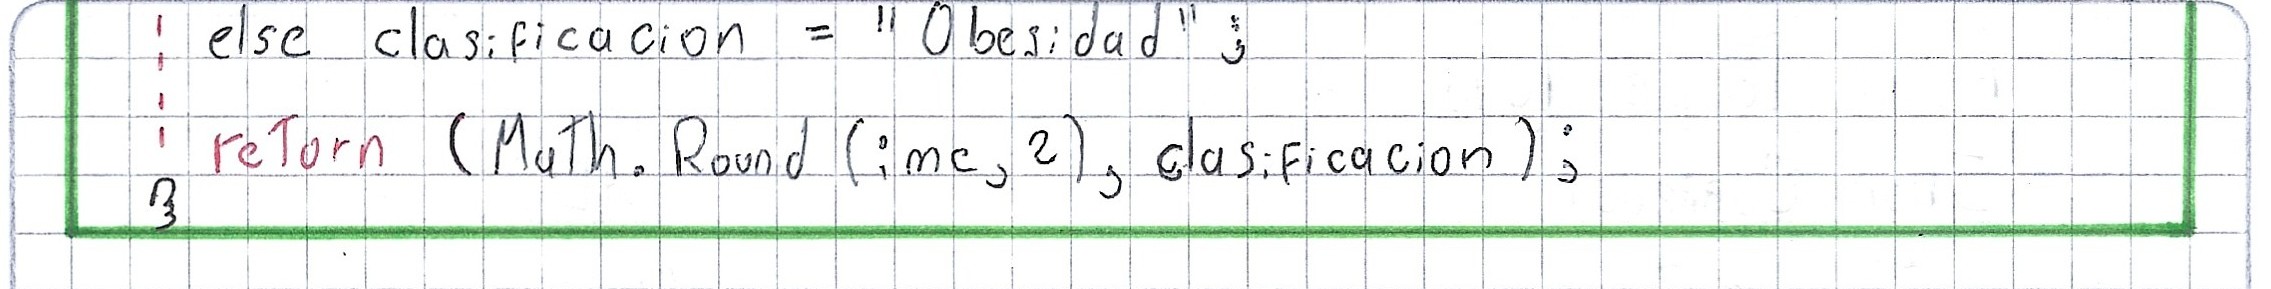 else clasificacion = "Obesidad";
reTorn (MaTh.Round (imc, 2), clasificacion);
}